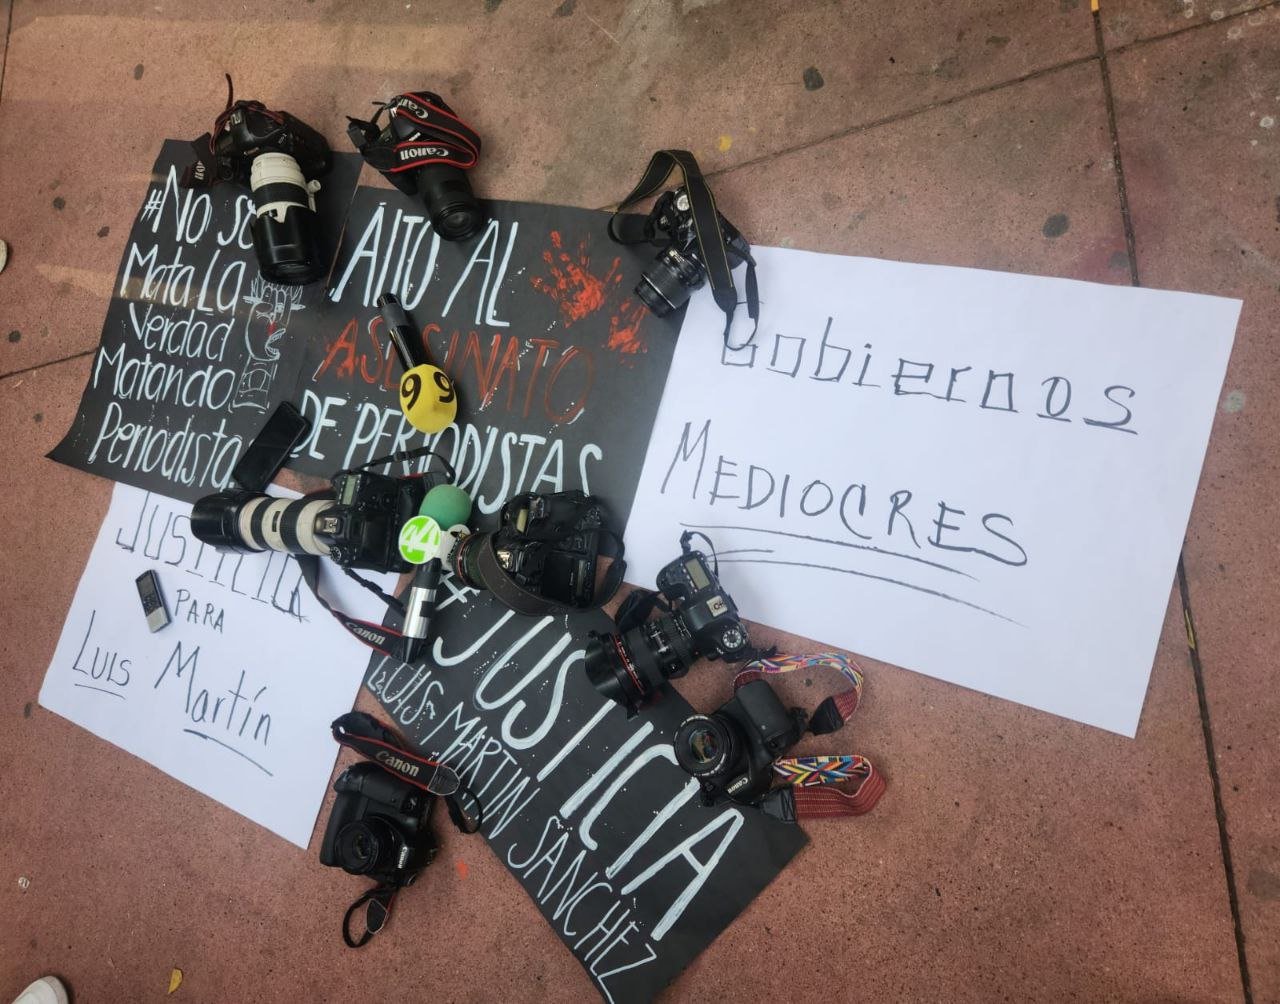 #No se
Mata La
Verdad
Matando
Periodista
ALTO AL
ASESINATO
DE PERIODISTAS
Gobiernos
MEDIOCRES
JUSTICIA
PARA
LUIS Martín
#JUSTICIA
LUIS MARTIN SANCHEZ
Canon
Canon
Canon
Canon
Canon
Canon
99